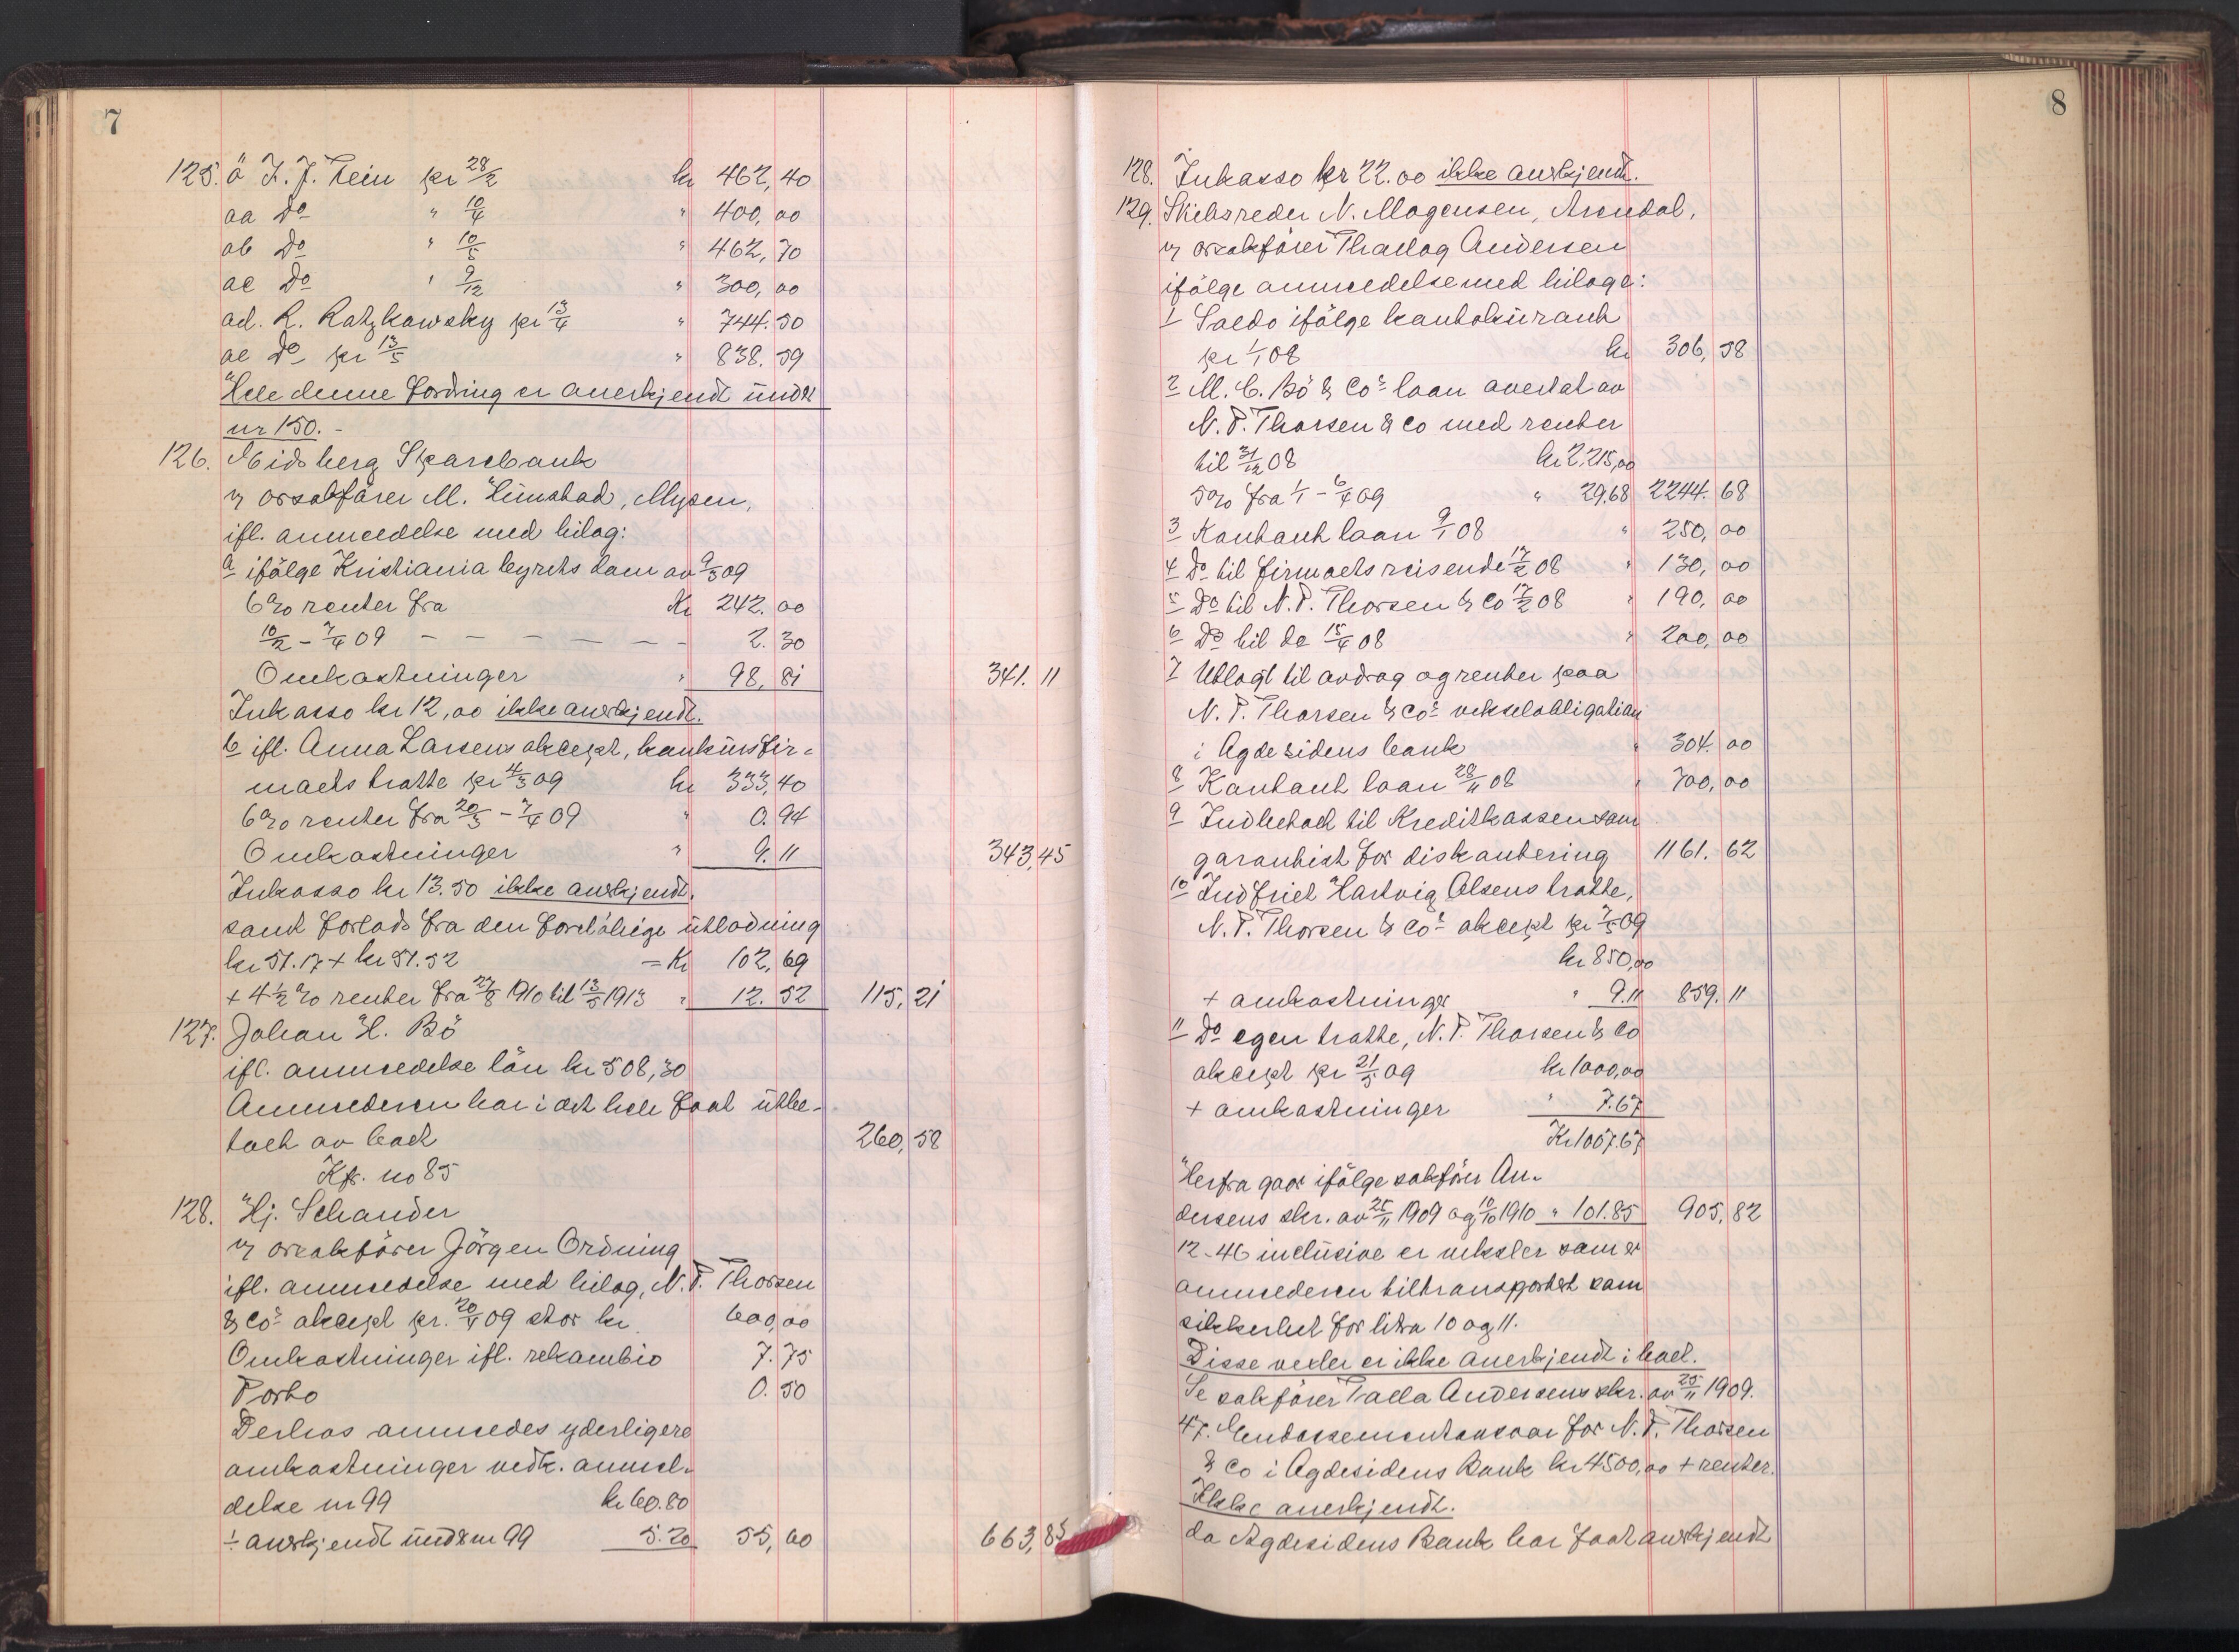 7
125. ö Z. J. Tein pr 28/2 kr 462,40
aa do " 10/4 " 400,00
ab do " 10/5 " 462,70
ac do " 9/12 " 300,00
ad. R. Ratzkowsky pr 13/4 " 744.50
ae do pr 13/5 " 838.59
Hele denne fordring er anerkjendt under
nr 150. -
126. Eidsberg Sparebank
v/ orsakfører M. Himstad, Mysen,
ifl. anmeldelse med bilag:
a ifölge Kristiania byrets dom av 9/3 09
6% renter fra Kr 242.00
10/2 - 7/4 09 - - - - - - 2.30
Omkostninger " 98,81 341.11
Inkasso kr 12,00 ikke anerkjendt.
b ifl. Anna Larsens aksept, konkursfir-
maets tratte pr 4/3 09 kr 333,40
6% renter fra 20/3 - 7/4 09 " 0.94
Omkostninger " 9.11 343,45
Inkasso kr 13.50 ikke anerkjendt.
samt forlods fra den foreløbige utlodning
kr 51.17 + kr 51.52 = Kr 102,69
+ 4 1/2 % renter fra 27/8 1910 til 13/5 1913 " 12.52 115,21
127. Johan H. Bö
ifl. anmeldelse lön kr 508,30
Anmelderen har i det hele faat utbe-
talt av boet 260,58
Kfr. no 85
128. Hj. Schander
v/ orsakförer Jörgen Ordning
ifl. anmeldelse med bilag, N. P. Thorsen
& Co's aksept pr. 20/4 09 stor kr 600,00
Omkostninger ifl. rekambio 7.75
Porto 0.50
Derhos anmeldes yderligere
omkostninger vedk. anmel-
delse nr 99 kr 60.80
÷ anerkjendt under nr 99 5.20 55,60 663,85
8
128. Inkasso kr 22.00 ikke anerkjendt.
129. Skibsreder N. Mogensen, Arendal,
v/ orsakförer Thallag Andersen
ifölge anmeldelse med bilage:
1 Saldo ifölge kontokurant
pr 1/1 08 kr 306,58
2 M. C. Bö & Co's laan overtat av
N. P. Thorsen & Co med renter
til 31/12 08 kr 2.215,00
5% fra 1/1 - 6/4 09 " 29.68 2244.68
3 Kontant laan 9/1 08 " 250,00
4 do til firmaets reisende 17/2 08 " 130,00
5 do til N. P. Thorsen & Co 17/2 08 " 190,00
6 do til do 15/4 08 " 200,00
7 Utlagt til avdrag og renter paa
N. P. Thorsen & Co's vekselobligation
i Agdesidens bank " 304.00
8 Kontant laan 28/11 08 " 700,00
9 Indbetalt til Kreditkassen som
garantist for diskontering 1161.62
10 Indfriet Hartvig Olsens tratte,
N. P. Thorsen & Co's aksept pr 7/5 09
kr 850,00
+ omkostninger " 9.11 859.11
11 do egen tratte, N. P. Thorsen & Co
aksept pr 21/5 09 kr 1000,00
+ omkostninger " 7.67
Kr 1007.67
Herfra gaar ifölge sakförer An-
dersens skr. av 25/11 1909 og 10/10 1910 " 101.85 905,82
12-46 inclusive er veksler som er
anmelderen tiltransportert som
sikkerhet for litra 10 og 11.
Disse vexler er ikke anerkjendt i boet.
Se sakförer Talla Andersens skr. av 25/11 1909.
47. Endossementansvar for N. P. Thorsen
& Co i Agdesidens Bank kr 4500,00 + renter.
Ikke anerkjendt.
da Agdesidens Bank har faat anerkjendt